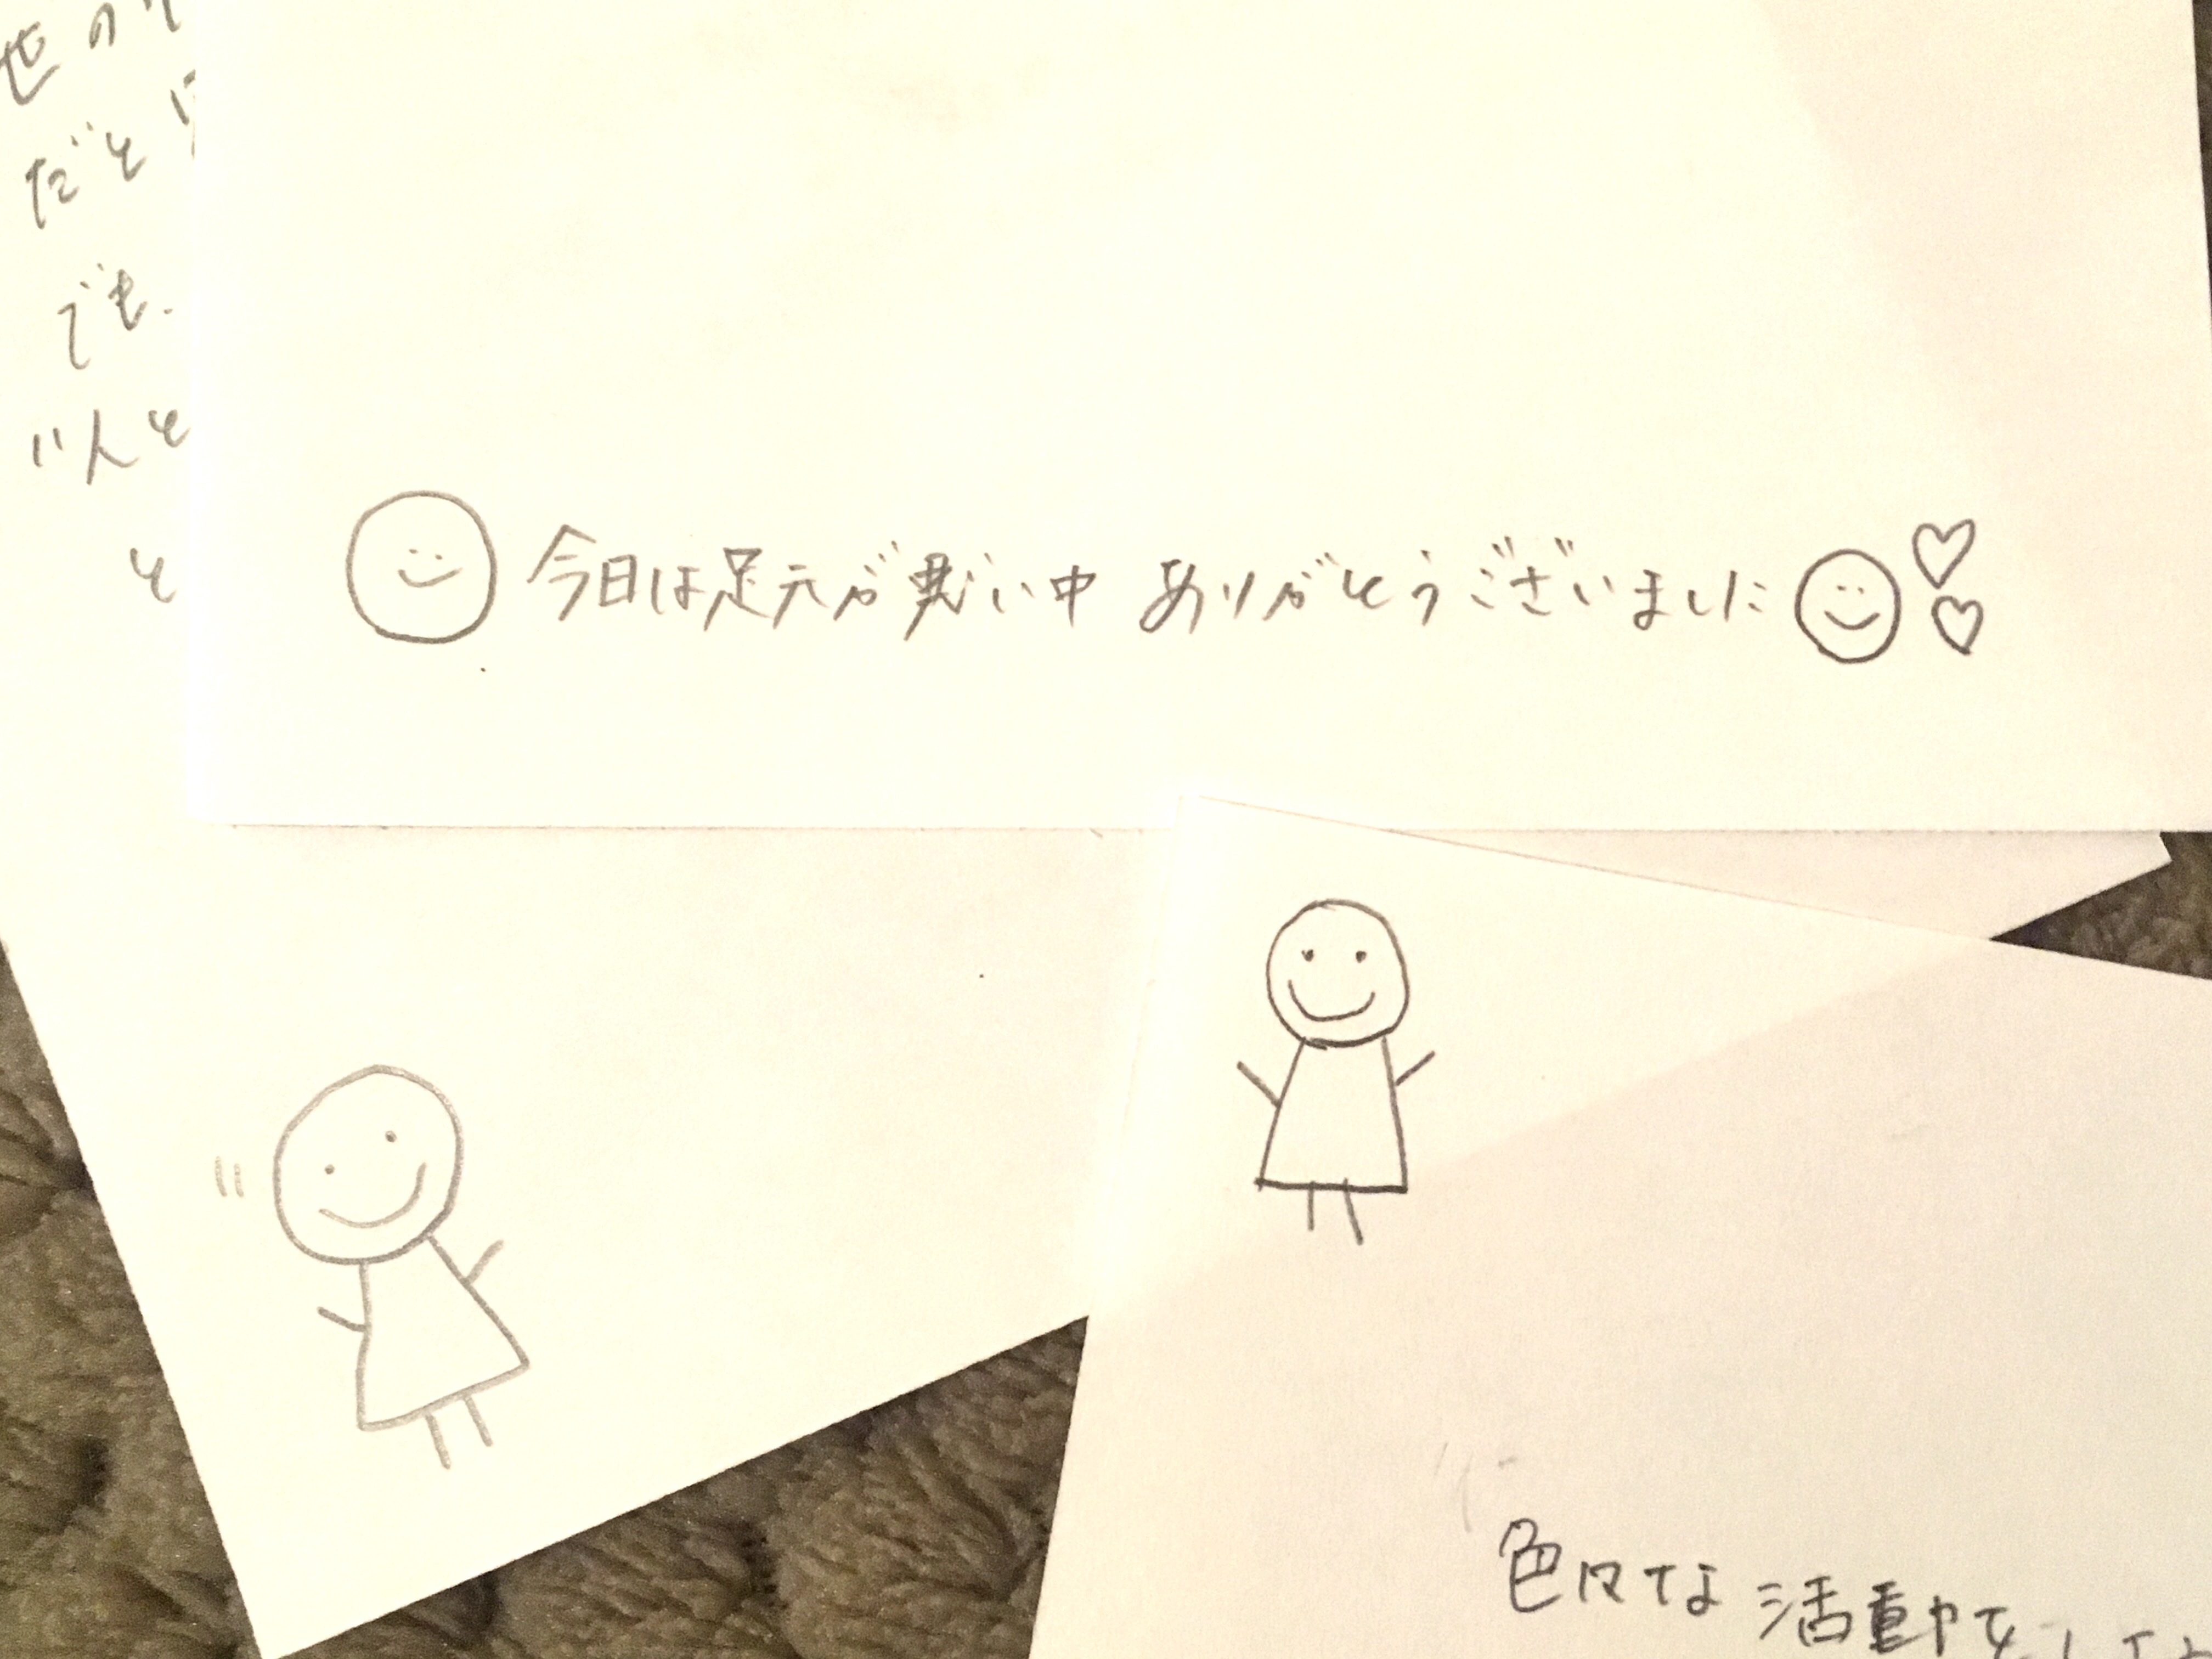 世の
だと
でも、
い人と
と
今日は足元が悪い中 ありがとうございました
色々な活動をして